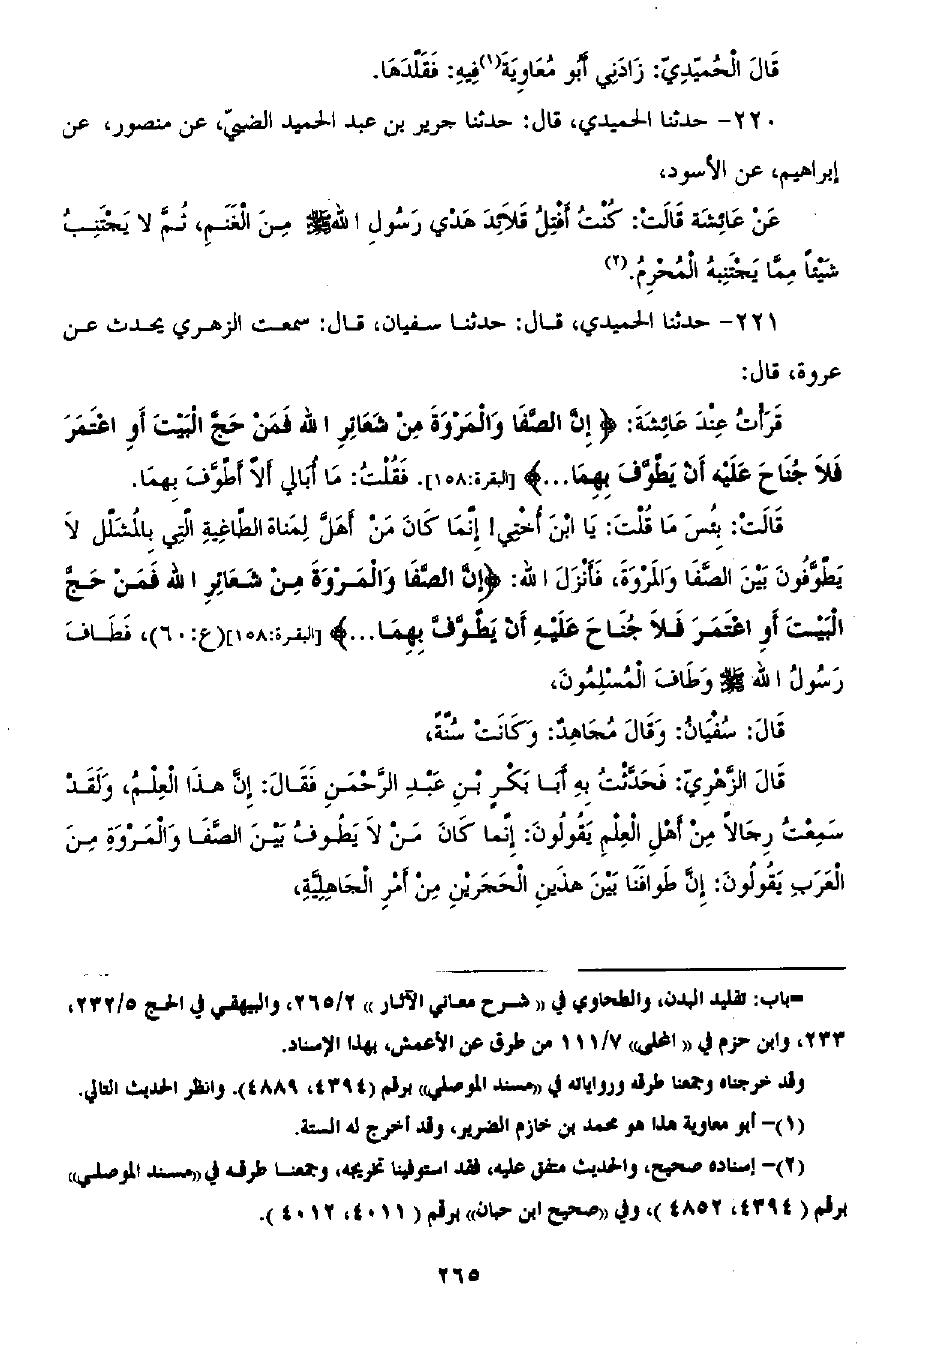 قَالَ الْحُمَيْدِيّ: زَادَنِي أَبُو مُعَاوِيَةَ(١) فِيهِ: فَقَلَّدَهَا.
٢٢٠- حدثنا الحميدي، قال: حدثنا جرير بن عبد الحميد الضبيّ، عن منصور، عن
إبراهيم، عن الأسود،
عَنْ عَائِشَة قَالَتْ: كُنْتُ أَفْتِلُ قَلاَئِدَ هَدْي رَسُول اللهﷺ مِنَ الْغَنَمِ، ثُمَّ لا يَجْتَنِبُ
شَيْئاً مِمَّا يَجْتَنِبهُ الْمُحْرِمُ.(٢)
٢٢١- حدثنا الحميدي، قال: حدثنا سفيان، قال: سمعت الزهري يحدث عن
عروة، قال:
قَرَأتُ عِنْدَ عَائِشَةَ: ﴿ إنَّ الصَّفَا وَالْمَرْوَةَ مِنْ شَعَائِرِ الله فَمَنْ حَجَّ الْبَيْتَ أَوِ اعْتَمَرَ
فَلاَ جُنَاحَ عَلَيْهِ أَنْ يَطَّوَّفَ بِهِمَا...﴾ [البقرة:١٥٨]. فَقُلْتُ: مَا أُبَالي أَلاَّ أَطَّوَّفَ بِهِمَا.
قَالَتْ: بِئْسَ مَا قُلْتَ: يَا ابْنَ أُخْتِي! إنَّمَا كَانَ مَنْ أَهَلَّ لِمَنَاةَ الطَّاغِيةِ الَّتِي بِالْمُشَلَّلِ لاَ
يَطَّوَّفُونَ بَيْنَ الصَّفَا وَالمَرْوَةَ، فَأَنْزَلَ الله: ﴿إنَّ الصَّفَا وَالْمَرْوَةَ مِنْ شَعَائِرِ الله فَمَنْ حَجَّ
الْبَيْتَ أَوِ اعْتَمَرَ فَلاَ جُنَاحَ عَلَيْهِ أَنْ يَطَّوَّفَ بِهِمَا...﴾ [البقرة:١٥٨](ع:٦٠)، فَطَافَ
رَسُولُ الله ﷺ وَطَافَ الْمُسْلِمُونَ،
قَالَ: سُفْيَانُ: وَقَالَ مُجَاهِدٌ: وَكَانَتْ سُنَّةً،
قَالَ الزُّهْرِيّ: فَحَدَّثْتُ بِهِ أَبَا بَكْرِ بْنِ عَبْدِ الرَّحْمَنِ فَقَالَ: إنَّ هذَا الْعِلْمُ، وَلَقَدْ
سَمِعْتُ رِجَالاً مِنْ أَهْلِ الْعِلْمِ يَقُولُونَ: إنَّما كَانَ مَنْ لاَ يَطُوفُ بَيْنَ الصَّفَا وَالْمَرْوَةِ مِنَ
الْعَرَبِ يَقُولُونَ: إنَّ طَوَافَنَا بَيْنَ هذَينِ الْحَجَرَيْنِ مِنْ أَمْرِ الْجَاهِلِيَّةِ،
=باب: تقليد البدن، والطحاوي في «شرح معاني الآثار» ٢٦٥/٢، والبيهقي في الحج ٢٣٢/٥،
٢٣٣، وابن حزم في «المحلى» ١١١/٧ من طرق عن الأعمش، بهذا الإسناد.
وقد خرجناه وجمعنا طرقه ورواياته في «مسند الموصلي» برقم (٤٣٩٤، ٤٨٨٩). وانظر الحديث التالي.
(١)- أبو معاوية هذا هو محمد بن خازم الضرير، وقد أخرج له الستة.
(٢)- إسناده صحيح، والحديث متفق عليه، فقد استوفينا تخريجه، وجمعنا طرقه في «مسند الموصلي»
برقم ( ٤٣٩٤، ٤٨٥٢ )، وفي «صحيح ابن حبان» برقم ( ٤٠١١، ٤٠١٢ ).
٢٦٥